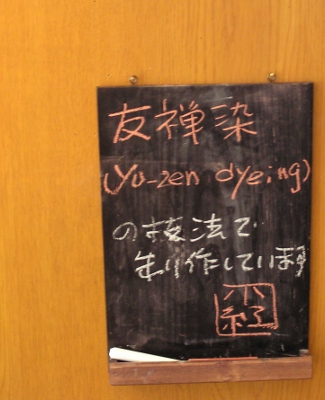 友禅染
(yu-zen dyeing)
の技法で
制作しています